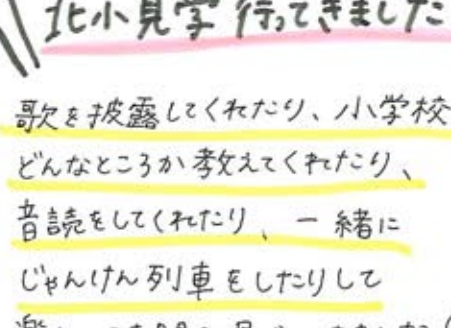 北小見学 行ってきました
歌を披露してくれたり、小学校
どんなところか教えてくれたり、
音読をしてくれたり、一緒に
じゃんけん列車をしたりして